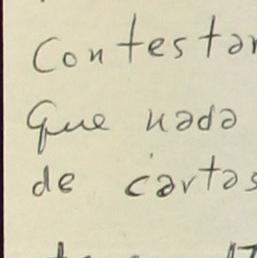 Contestar
que nada
de cartas